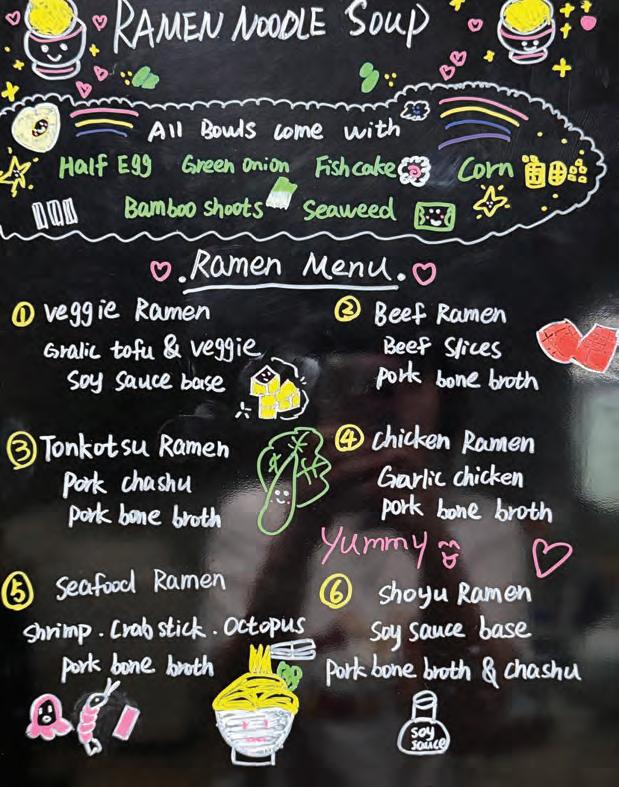 RAMEN NOODLE SOUP
All Bowls come with
Half Egg Green Onion Fishcake Corn
Bamboo Shoots Seaweed
Ramen Menu
① veggie Ramen
Gralic tofu & veggie
Soy Sauce base
② Beef Ramen
Beef Slices
Pork bone broth
③ Tonkotsu Ramen
Pork chashu
Pork bone broth
④ chicken Ramen
Garlic chicken
Pork bone broth
Yummy
⑤ Seafood Ramen
Shrimp . Crab stick . Octopus
Pork bone broth
⑥ Shoyu Ramen
Soy sauce base
Pork bone broth & chashu
soy
sauce